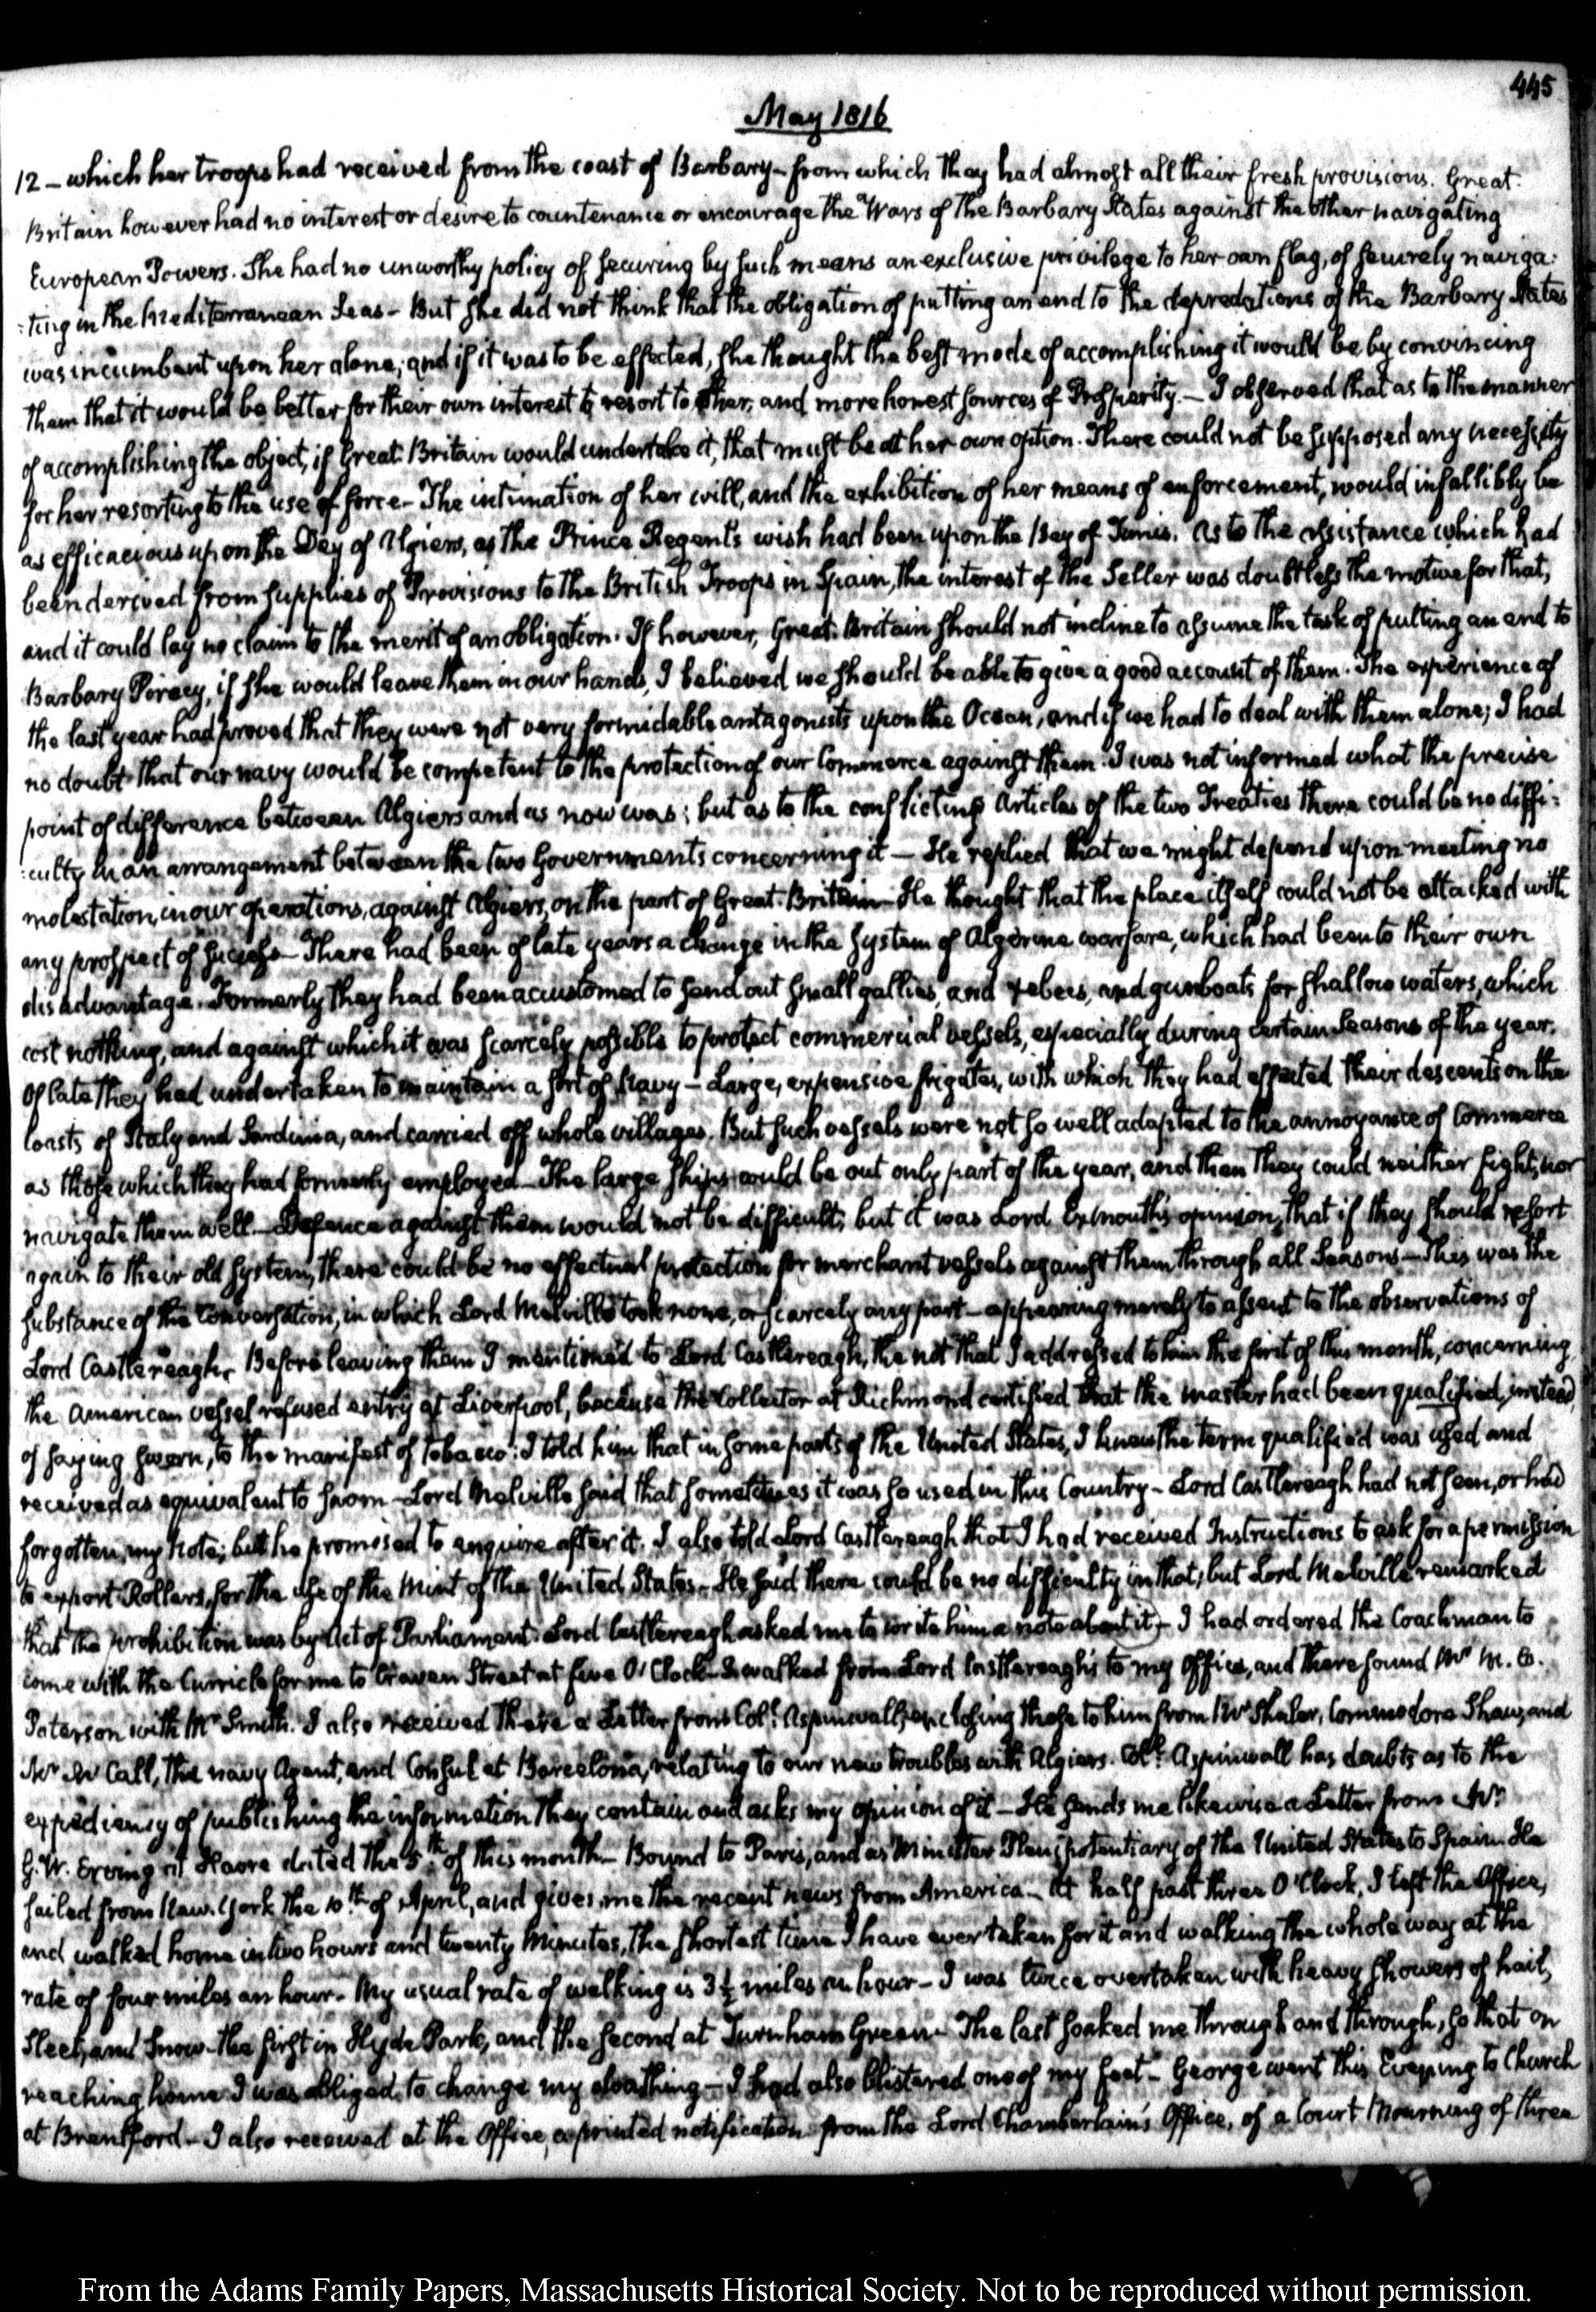 445
May 1816
12 – which her troops had received from the coast of Barbary – from which they had almost all their fresh provisions. Great
Britain however had no interest or desire to countenance or encourage the Wars of the Barbary States against the other navigating
European Powers. She had no unworthy policy of securing by such means an exclusive privilege to her own flag, of securely naviga:
:ting in the Mediterranean Seas – But she did not think that the obligation of putting an end to the depredations of the Barbary States
was incumbent upon her alone; and if it was to be effected, she thought the best mode of accomplishing it would be by convincing
them that it would be better for their own interest to resort to other, and more honest sources of Prosperity. – I observed that as to the manner
of accomplishing the object, if Great Britain would undertake it, that must be at her own option. There could not be supposed any necessity
for her resorting to the use of force – The intimation of her will, and the exhibition of her means of enforcement, would infallibly be
as efficacious upon the Dey of Algiers, as the Prince Regent's wish had been upon the Bey of Tunis. As to the assistance which had
been derived from supplies of Provisions to the British Troops in Spain, the interest of the Seller was doubtless the motive for that,
and it could lay no claim to the merit of an obligation. If however, Great Britain should not incline to assume the task of putting an end to
Barbary Piracy, if she would leave them in our hands, I believed we should be able to give a good account of them. The experience of
the last year had proved that they were not very formidable antagonists upon the Ocean, and if we had to deal with them alone, I had
no doubt that our navy would be competent to the protection of our Commerce against them. I was not informed what the precise
point of difference between Algiers and us now was; but as to the conflicting Articles of the two Treaties there could be no diffi:
:culty in an arrangement between the two Governments concerning it – He replied that we might depend upon meeting no
molestation, in our operations, against Algiers, on the part of Great Britain – He thought that the place itself could not be attacked with
any prospect of success – There had been of late years a change in the system of Algerine warfare, which had been to their own
disadvantage. Formerly they had been accustomed to send out small gallies, and xebecs, and gunboats for shallow waters, which
cost nothing, and against which it was scarcely possible to protect commercial vessels, especially during certain Seasons of the year.
Of late they had undertaken to maintain a sort of Navy – Large, expensive frigates, with which they had effected their descents on the
Coasts of Italy and Sardinia, and carried off whole villages. But such vessels were not so well adapted to the annoyance of Commerce
as those which they had formerly employed – The large ships could be out only part of the year, and then they could neither fight, nor
navigate them well – Defence against them would not be difficult; but it was Lord Exmouth's opinion, that if they should resort
again to their old system, there could be no effectual protection for merchant vessels against them through all Seasons – This was the
substance of the Conversation, in which Lord Melville took none, or scarcely any part – appearing merely to assent to the observations of
Lord Castlereagh. Before leaving them I mentioned to Lord Castlereagh, the not that I addressed to him the first of this month, concerning
the American vessel refused entry at Liverpool, because the Collector at Richmond certified that the master had been qualified, instead
of saying sworn, to the manifest of Tobacco: I told him that in some parts of the United States, I knew the term qualified was used and
received as equivalent to sworn – Lord Melville said that sometimes it was so used in this Country – Lord Castlereagh had not seen, or had
forgotten, my Note; but he promised to enquire after it. I also told Lord Castlereagh that I had received Instructions to ask for a permission
to export Rollers, for the use of the Mint of the United States – He said there could be no difficulty in that; but Lord Melville remarked
that the prohibition was by Act of Parliament. Lord Castlereagh asked me to write him a note about it – I had ordered the Coachman to
come with the Curricle for me to Craven Street at five O'Clock – I walked from Lord Castlereagh's to my Office, and there found Mr M. C.
Paterson with Mr Smith. I also received there a Letter from Coll. Aspinwall, enclosing those to him from Mr Shaler, Commodore Shaw, and
Mr Mc Call, the navy Agent, and Consul at Barcelona, relating to our new troubles with Algiers. Coll. Aspinwall has doubts as to the
expediency of publishing the information they contain and asks my opinion of it – He sends me likewise a Letter from Mr
G. W. Erving at Havre dated the 5th of this month – Bound to Paris, and as Minister Plenipotentiary of the United States to Spain. He
sailed from New York the 10th of April, and gives me the recent news from America – At half past three O'Clock, I left the Office,
and walked home in two hours and twenty minutes, the shortest time I have ever taken for it and walking the whole way at the
rate of four miles an hour. My usual rate of walking is 3½ miles an hour – I was twice overtaken with heavy showers of hail,
Sleet, and Snow – the first in Hyde Park, and the second at Turnham Green – The last soaked me through and through, so that on
reaching home I was obliged to change my cloathing – I had also blistered one of my feet – George went this Evening to Church
at Brentford – I also received at the Office, a printed notification from the Lord Chamberlain's Office, of a Court Mourning of three
From the Adams Family Papers, Massachusetts Historical Society. Not to be reproduced without permission.